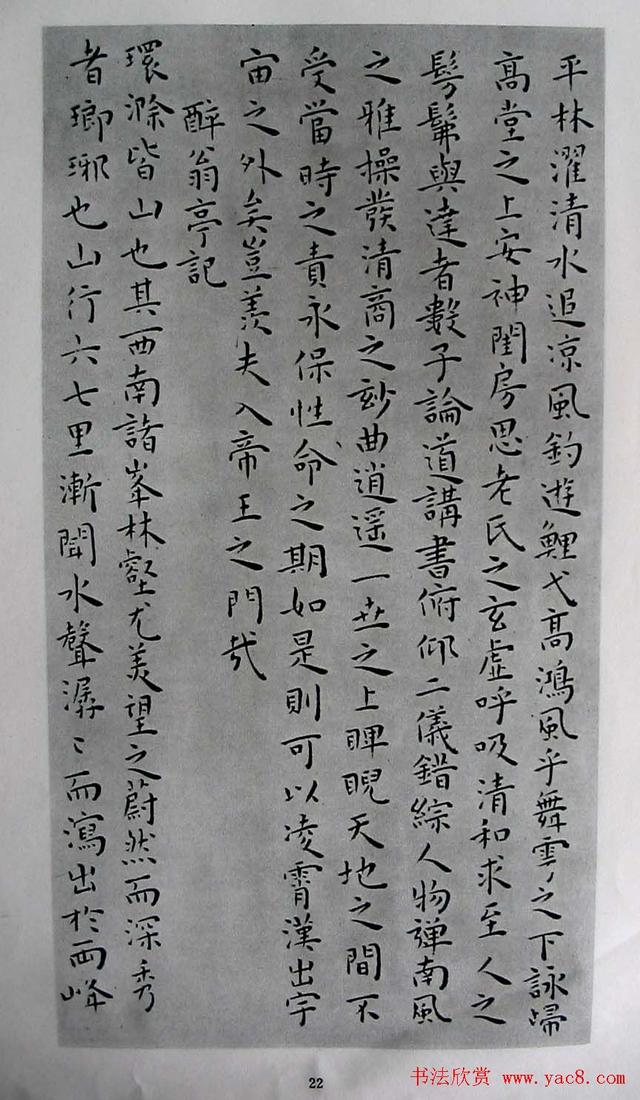 平林濯清水追凉風釣遊鯉弋高鴻風乎舞雩之下詠歸
高堂之上安神閨房思老氏之玄虛呼吸清和求至人之
髣髴與達者數子論道講書俯仰二儀錯綜人物彈南風
之雅操發清商之玅曲逍遥一世之上睥睨天地之間不
受當時之責永保性命之期如是則可以凌霄漢出宇
宙之外矣豈羨夫入帝王之門哉
醉翁亭記
環滁皆山也其西南諸峯林壑尤美望之蔚然而深秀
者瑯琊也山行六七里漸聞水聲潺〻而瀉出於兩峰
22
书法欣赏 www.yac8.com